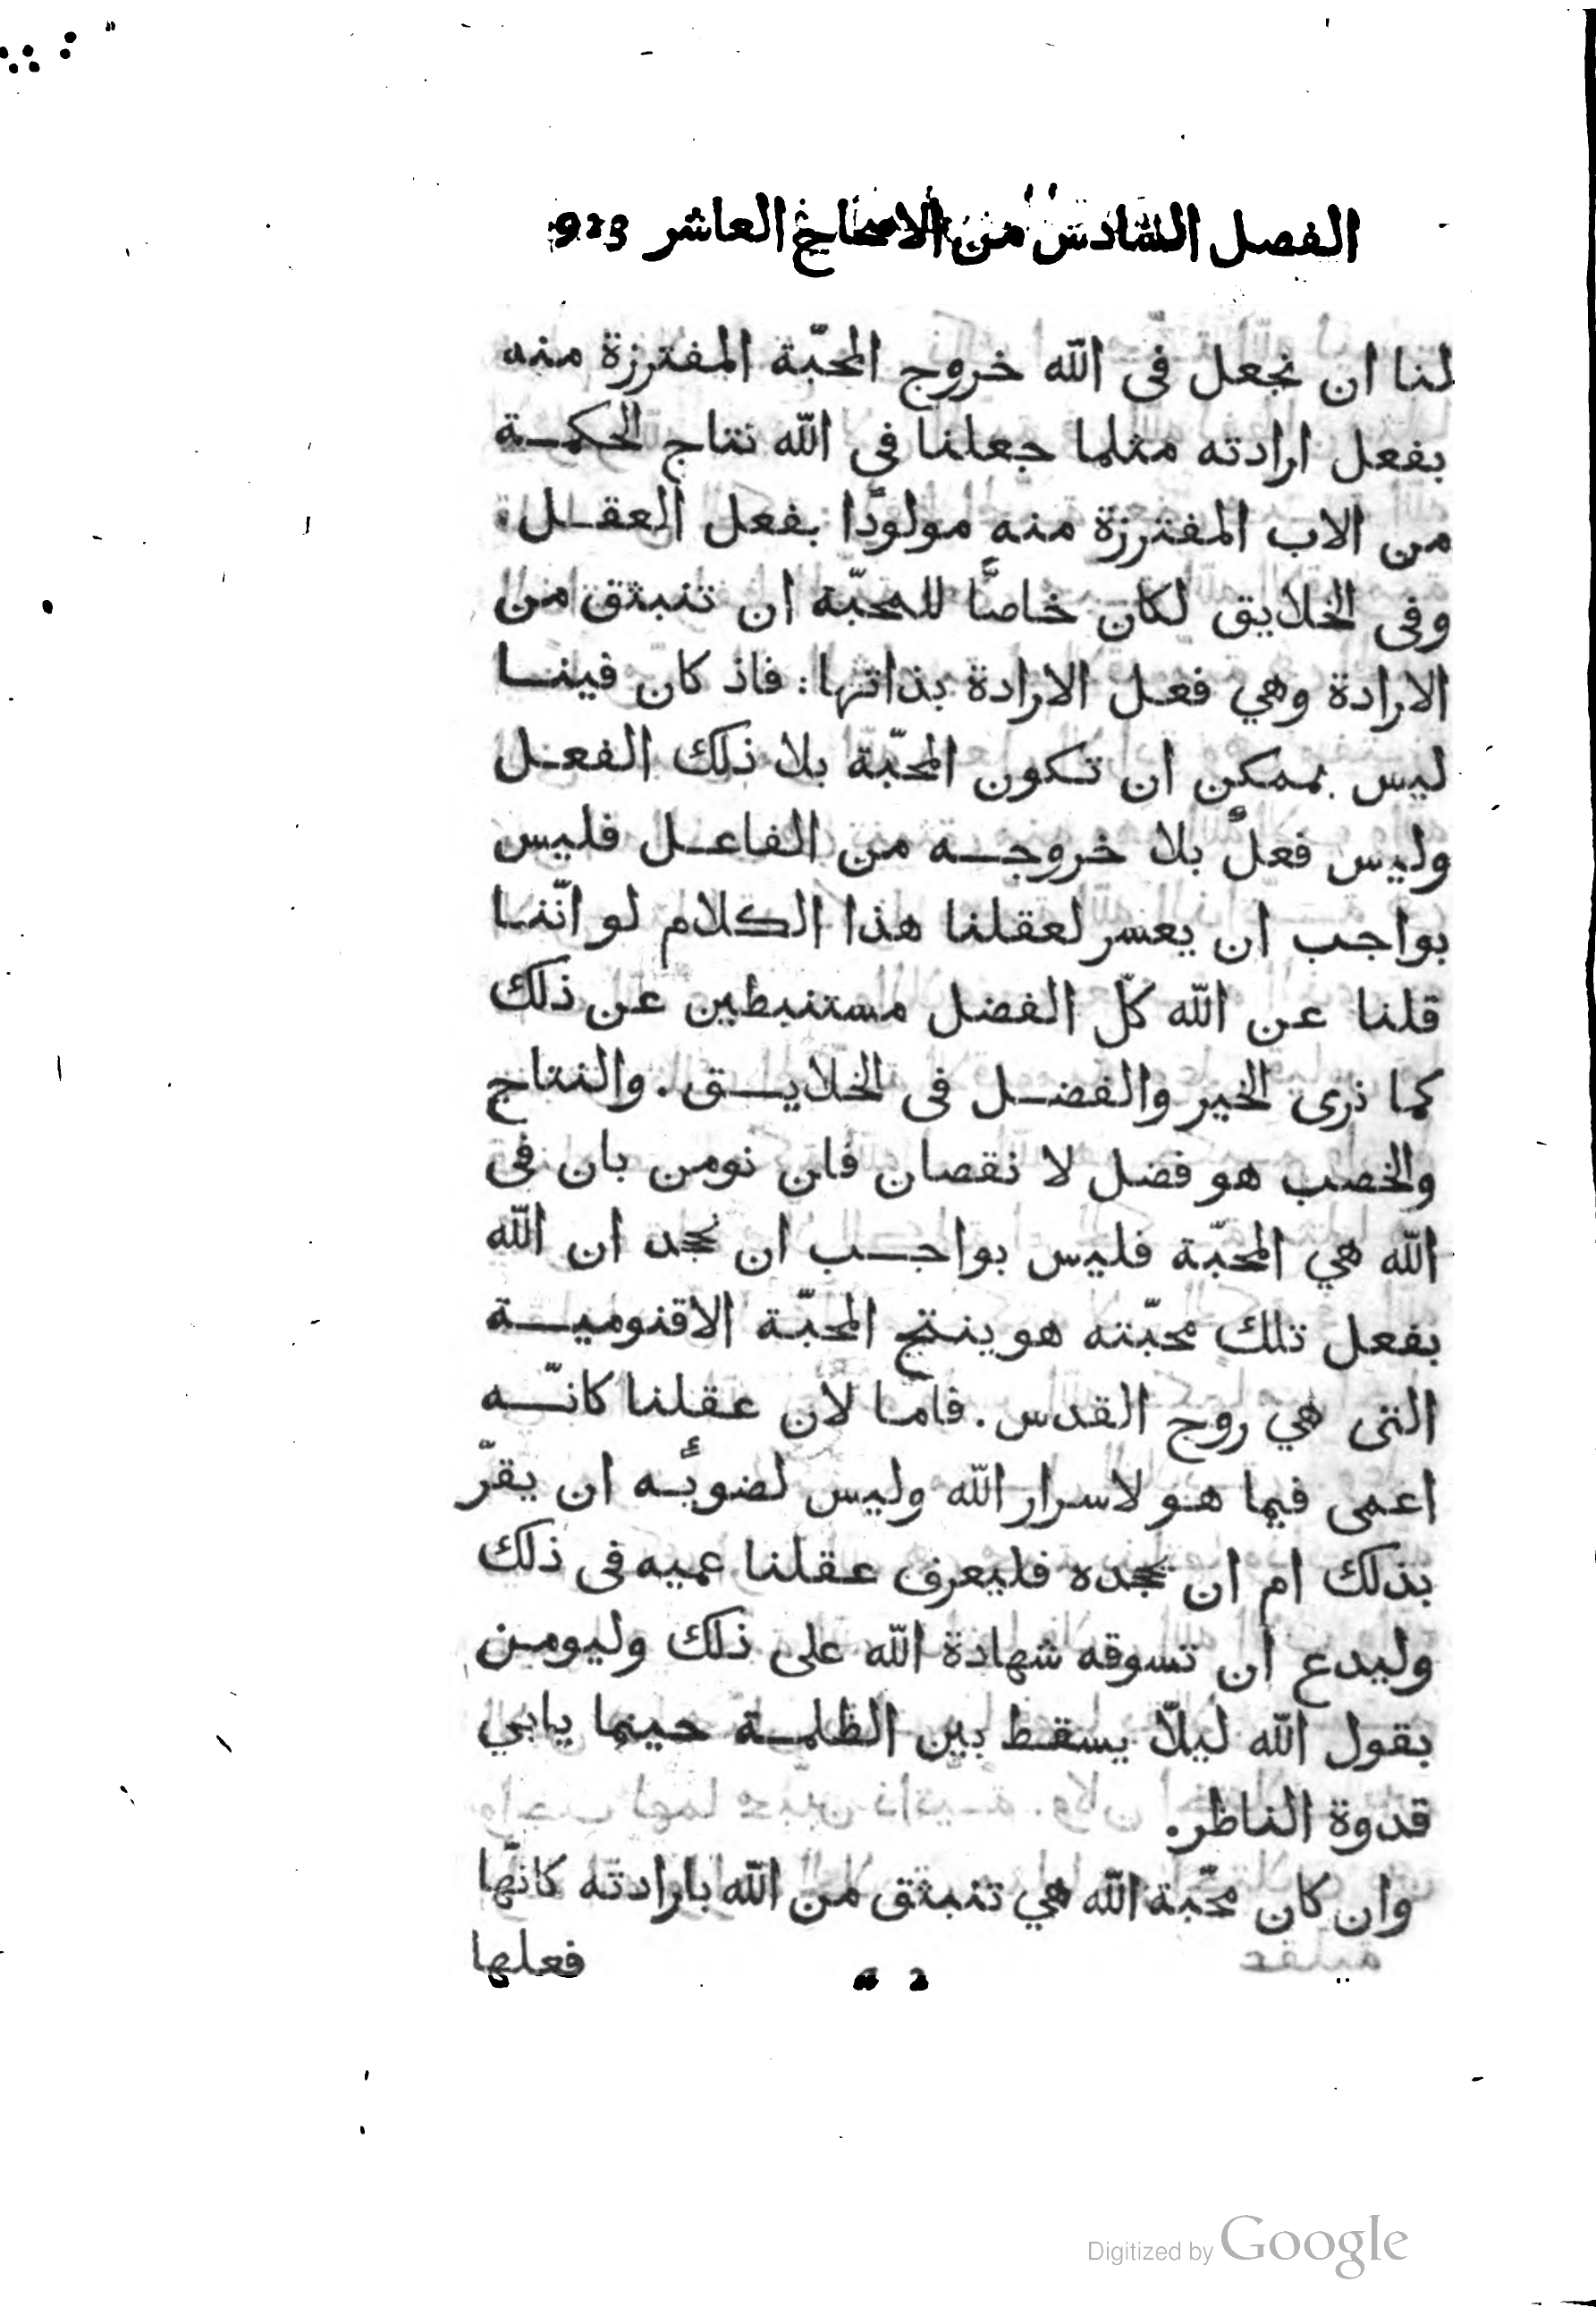 الفصل السادس من الاصحاح العاشر 923
لنا ان نجعل فى الله خروج المحبّة المفترزة منه
بفعل ارادته مثلما جعلنا فى الله نتاج الحكمة
من الاب المفترزة منه مولودًا بفعل العقل
وفى الخلايق لكان خاصًّا للمحبّة ان تنبثق من
الارادة وهي فعل الارادة بذاتها: فاذ كان فينا
ليس بممكن ان تكون المحبّة بلا ذلك الفعل
وليس فعلٌ بلا خروجه من الفاعل فليس
بواجب ان يعسر لعقلنا هذا الكلام لو انّنا
قلنا عن الله كلّ الفضل مستنبطين عن ذلك
كما نرى الخير والفضل فى الخلايق. والنتاج
والخصب هو فضل لا نقصان فان نومن بان فى
الله هي المحبّة فليس بواجب ان نجحد ان الله
بفعل تلك محبّته هو ينتج المحبّة الاقنومية
التى هي روح القدس. فامّا لان عقلنا كانّه
اعمى فيما هو لاسرار الله وليس لضويه ان يقرّ
بذلك ام ان يجحده فليعرف عقلنا عميه فى ذلك
وليدع ان تسوقه شهادة الله على ذلك وليومن
بقول الله ليلّا يسقط بين الظلمة حينما يابي
قدوة الناظر.
وان كان محبّة الله هي تنبثق من الله بارادته كانّها
فعلها
Digitized by Google